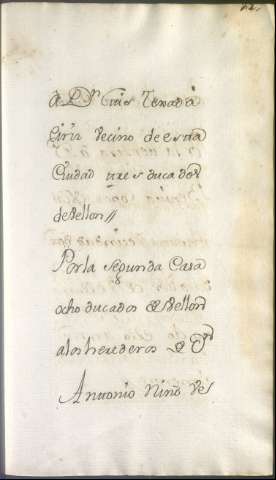 a D.ⁿ Luis Texada
vecino de esta
Ciudad tres ducados
de Vellon //
Por la segunda Casa
ocho ducados de Vellon
a los herederos de D.ⁿ
Antonio Nino des